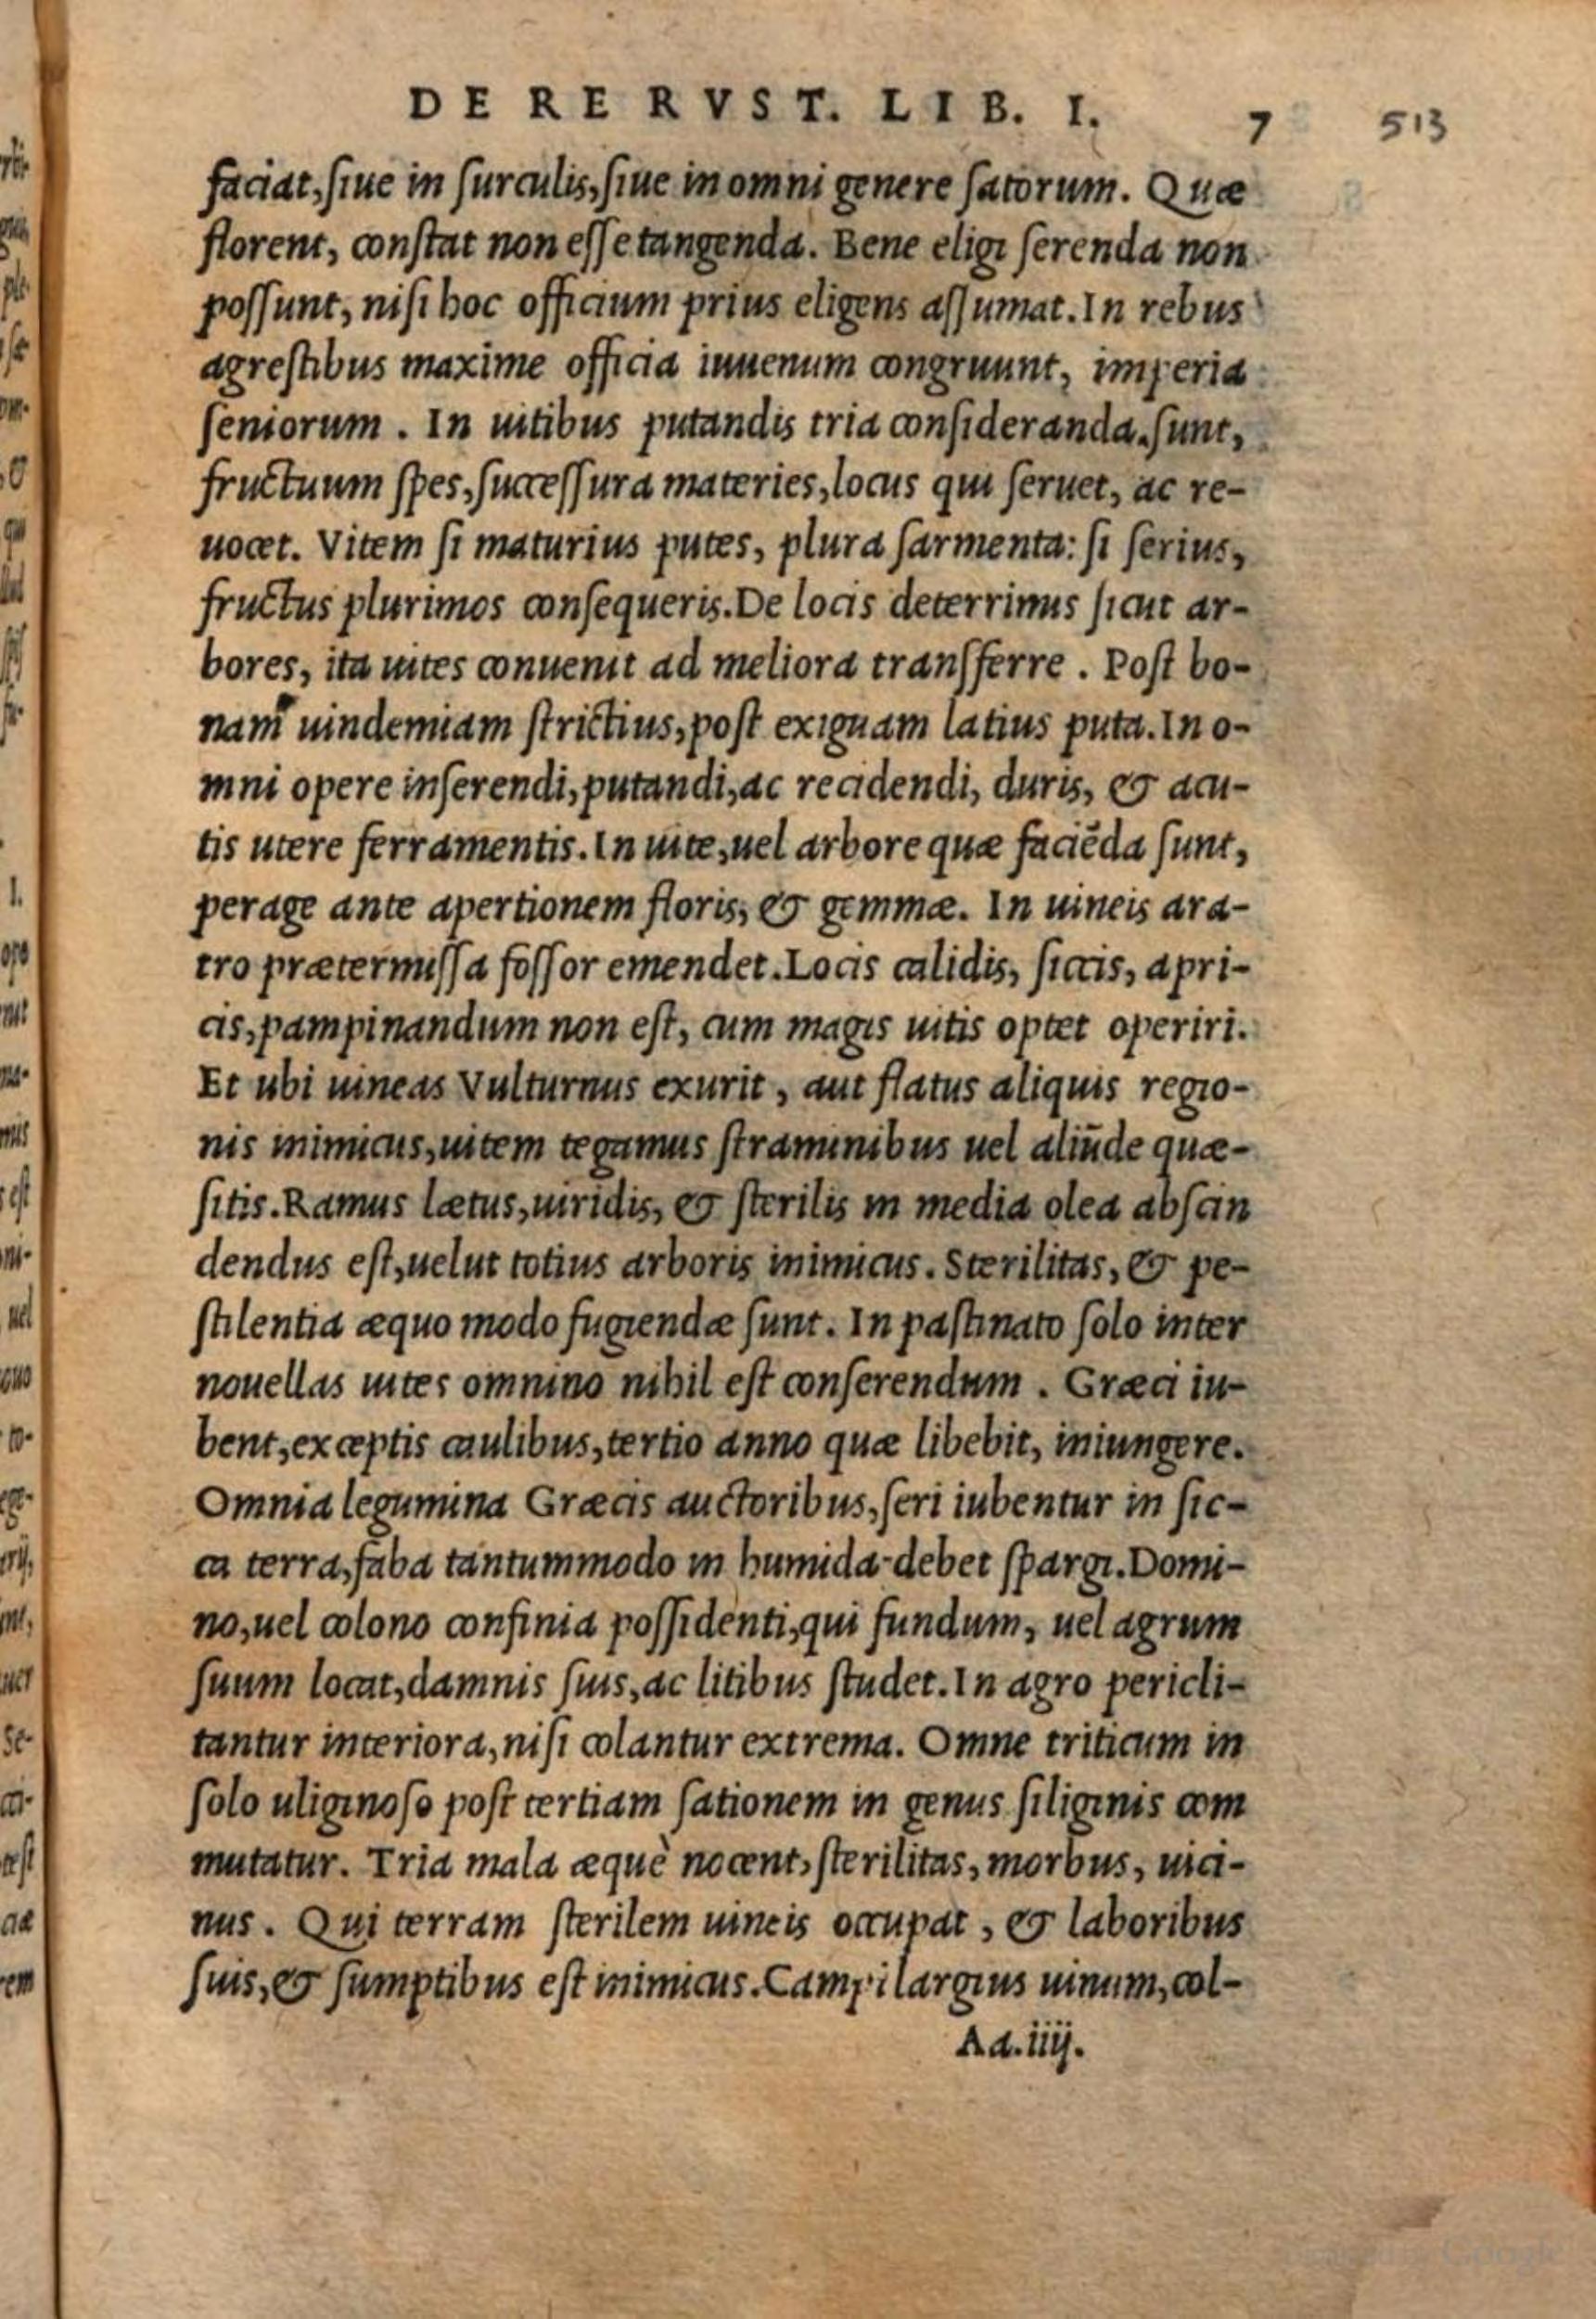 DE RE RVST. LIB. I. 7 513
faciat, siue in surculis, siue in omni genere satorum. Quæ
florent, constat non esse tangenda. Bene eligi serenda non
possunt, nisi hoc officium prius eligens assumat. In rebus
agrestibus maxime officia iuuenum congruunt, imperia
seniorum. In uitibus putandis tria consideranda sunt,
fructuum spes, successura materies, locus qui seruet, ac re-
uocet. Vitem si maturius putes, plura sarmenta: si serius,
fructus plurimos consequeris. De locis deterrimis sicut ar-
bores, ita uites conuenit ad meliora transferre. Post bo-
nam uindemiam strictius, post exiguam latius puta. In o-
mni opere inserendi, putandi, ac recidendi, duris, & acu-
tis utere ferramentis. In uite, uel arbore quæ faciēda sunt,
perage ante apertionem floris, & gemmæ. In uineis ara-
tro prætermissa fossor emendet. Locis calidis, siccis, apri-
cis, pampinandum non est, cum magis uitis optet operiri.
Et ubi uineas Vulturnus exurit, aut flatus aliquis regio-
nis inimicus, uitem tegamus straminibus uel aliūde quæ-
sitis. Ramus lætus, uiridis, & sterilis in media olea abscin
dendus est, uelut totius arboris inimicus. Sterilitas, & pe-
stilentia æquo modo fugiendæ sunt. In pastinato solo inter
nouellas uites omnino nihil est conserendum. Græci iu-
bent, exceptis caulibus, tertio anno quæ libebit, iniungere.
Omnia legumina Græcis auctoribus, seri iubentur in sic-
ca terra, faba tantummodo in humida debet spargi. Domi-
no, uel colono confinia possidenti, qui fundum, uel agrum
suum locat, damnis suis, ac litibus studet. In agro pericli-
tantur interiora, nisi colantur extrema. Omne triticum in
solo uliginoso post tertiam sationem in genus siliginis com
mutatur. Tria mala æquè nocent, sterilitas, morbus, uici-
nus. Qui terram sterilem uineis occupat, & laboribus
suis, & sumptibus est inimicus. Campi largius uinum, col-
Aa.iiij.